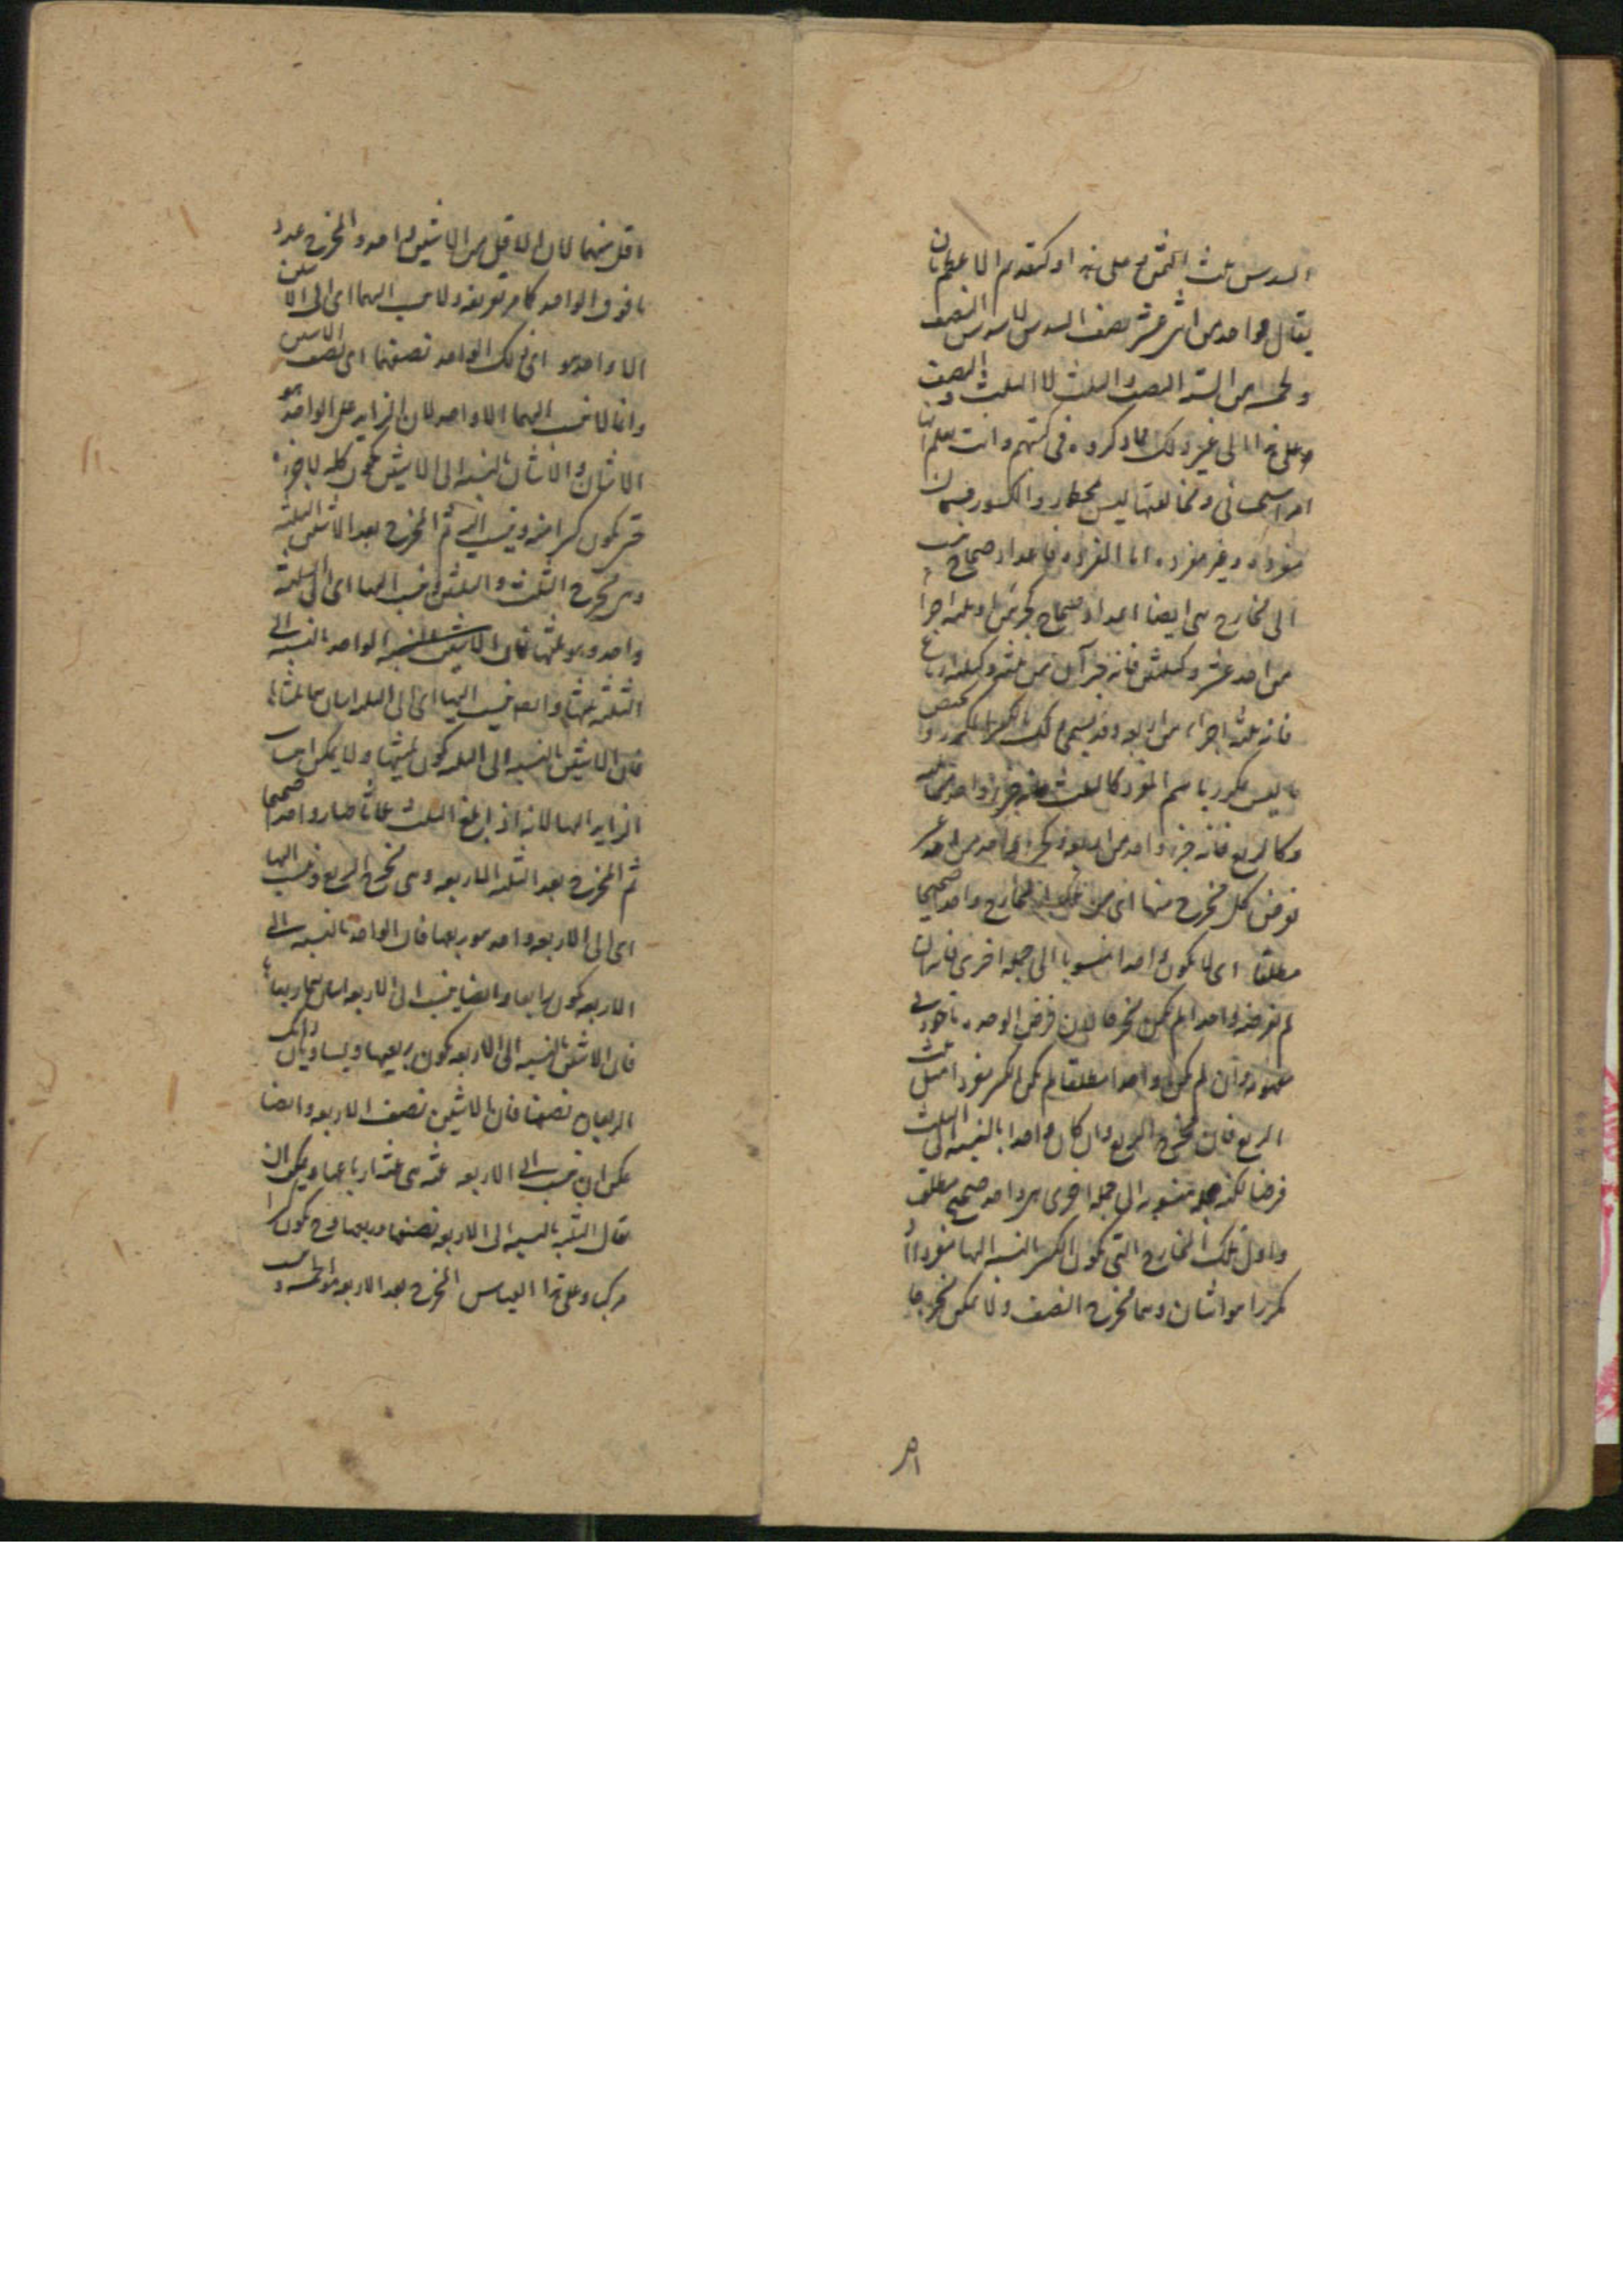 السدس ثلث الثمن على هذا وكتقديم الاعظم بان
يقال لواحد من اثنى عشر نصف السدس لا سدس النصف
ولخمسة من الستة النصف والثلث لا الثلث والنصف
وعلى هذا الى غير ذلك مما ذكروه فى كتبهم وانت تعلم ان
امر استحسانى ومخالفتها ليس بمحظور والكسور قسمان
مفرده وغير مفرده اما المفرده فاعداد صحاح تنسب
الى مخارج هى ايضا اعداد صحاح كجزئين او ثلثه اجزاء
من احد عشر وكثلثين فانه جزآن من ثلثه وكثلثه ارباع
فانه ثلثة اجزاء من اربعه وقد يسمى ذلك بالكسر المكرر ويخص
ما ليس بمكرر باسم المفرد كالثلث فانه جزء واحد من ثلثه
وكالربع فانه جزء واحد من اربعه وكجزء واحد من احد عشر
نفرض كل مخرج منها اى من تلك المخارج واحدا صحيحا
مطلقا اى لا يكون واحدا منسوبا الى جمله اخرى فانه ان
لم نفرضه واحدا لم يكن مخرجا لان فرض الوحده ماخوذ فى
مفهومه وان لم يكن واحدا مطلقا لم يكن الكسر مفردا مثل ثلث
الربع فان مخرج الربع وان كان واحدا بالنسبه الى الثلث
فرضا لكنه جمله منسوبه الى جمله اخرى هى واحد صحيح مطلق
واول تلك المخارج التى يكون الكسر بالنسبه اليها مفردا او
مكررا هو اثنان وهما مخرج النصف ولا يمكن مخرجا
اقل منهما لان الاقل من الاثنين واحد والمخرج عدد
ما فوق الواحد كما مر تعريفه ولا ينسب اليهما اى الى الاثنين
الا واحد هو اى ذلك الواحد نصفهما اى نصف الاثنين
وانما لا ينسب اليهما الا واحد لان الزايد على الواحد هو
الاثنان والاثنان بالنسبه الى الاثنين يكون كله لا جزءه
حتى يكون كسرا منه وينسب اليه ثم المخرج بعد الاثنين الثلثه
وهى مخرج الثلث والثلثين وينسب اليها اى الى الثلثه
واحد وهو ثلثها فان الواحد بالنسبه الى
الثلثه ثلثها وايضا ينسب اليها اى الى الثلثه اثنان هما ثلثاها
فان الاثنين بالنسبه الى الثلثه يكون ثلثيها ولا يمكن ان ينسب
الزايد اليها لانه اذا بلغ الثلث ثلاثا صار واحدا صحيحا
ثم المخرج بعد الثلثه الاربعه وهى مخرج الربع وينسب اليها
اى الى الاربعه واحد هو ربعها فان الواحد بالنسبه الى
الاربعه يكون ربعها وايضا ينسب الى الاربعه اثنان هما ربعاها
فان الاثنين بالنسبه الى الاربعه يكون ربعيها ويساويان ذانك
الربعان نصفها فان الاثنين نصف الاربعه وايضا
يمكن ان ينسب الى الاربعه ثلثه هى ثلثة ارباعها ويمكن ان
يقال الثلثه بالنسبه الى الاربعه نصفها وربعها وح يكون كسرا
مركبا وعلى هذا القياس المخرج بعد الاربعه هو الخمسه وينسب